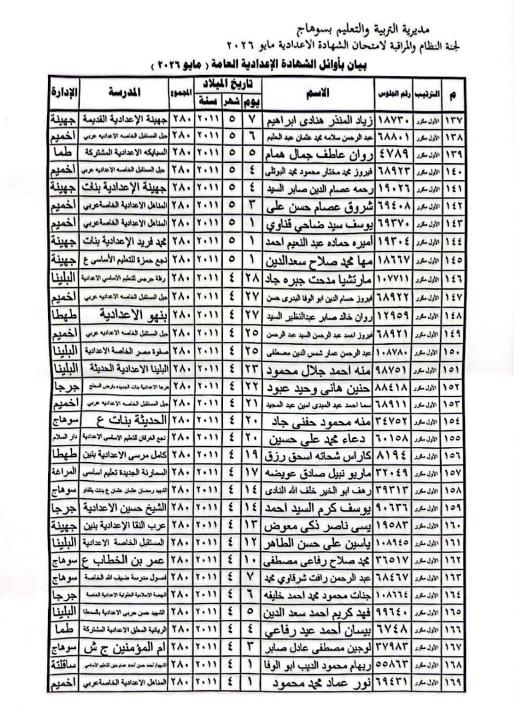 مديرية التربية والتعليم بسوهاج
لجنة النظام والمراقبة لامتحان الشهادة الاعدادية مايو ٢٠٢٦
بيان بأوائل الشهادة الإعدادية العامة ( مايو ٢٠٢٦ )
م الترتيب رقم الجلوس الاسم تاريخ الميلاد المجموع المدرسة الإدارة
يوم شهر سنة
١٣٧ الأول مكرر ١٨٧٣٠ زياد المنذر هنادى ابراهيم ٧ ٥ ٢٠١١ ٢٨٠ جهينة الإعدادية القديمة جهينة
١٣٨ الأول مكرر ٦٨٨٠١ عبد الرحمن سلامه محمد عثمان عبد الحليم ٦ ٥ ٢٠١١ ٢٨٠ جيل المستقبل الخاصه الاعداديه عربي اخميم
١٣٩ الأول مكرر ٤٧٨٩ روان عاطف جمال همام ٥ ٥ ٢٠١١ ٢٨٠ الإعدادية المشتركة طما
١٤٠ الأول مكرر ٦٨٩٢٣ فيروز محمد مختار محمود محمد ٤ ٥ ٢٠١١ ٢٨٠ جيل المستقبل الخاصه الاعداديه عربي اخميم
١٤١ الأول مكرر ١٩٠٢٦ رحمه عصام الدين صابر السيد ٤ ٥ ٢٠١١ ٢٨٠ جهينة الإعدادية بنات جهينة
١٤٢ الأول مكرر ٦٩٤٠٨ شروق عصام حسن على ٣ ٥ ٢٠١١ ٢٨٠ المناهل الاعدادية الخاصةعربي اخميم
١٤٣ الأول مكرر ٦٩٣٧٠ يوسف سيد ضاحي قناوي ٢ ٥ ٢٠١١ ٢٨٠ المناهل الاعدادية الخاصةعربي اخميم
١٤٤ الأول مكرر ١٩٣٠٤ أميره حماده عبد النعيم احمد ١ ٥ ٢٠١١ ٢٨٠ محمد فريد الإعدادية بنات جهينة
١٤٥ الأول مكرر ١٨٦٦٧ مها محمد صلاح سعدالدين ١ ٥ ٢٠١١ ٢٨٠ نجع حمزة للتعليم الأساسى ع جهينة
١٤٦ الأول مكرر ١٠٧٧١١ مارتشيا مدحت جبره جاد ٢٨ ٤ ٢٠١١ ٢٨٠ جرجس للتعليم الاساسي الاعدادية البلينا
١٤٧ الأول مكرر ٦٨٩٢٢ فيروز حسام الدين ابو الوفا البدرى حسن ٢٧ ٤ ٢٠١١ ٢٨٠ جيل المستقبل الخاصه الاعداديه عربي اخميم
١٤٨ الأول مكرر ١٢٩٥٩ روان خالد صابر عبدالنظير السيد ٢٧ ٤ ٢٠١١ ٢٨٠ بنهو الاعدادية طهطا
١٤٩ الأول مكرر ٦٨٩٢١ فيروز احمد عبد الرحمن السيد عبد الرحمن ٢٥ ٤ ٢٠١١ ٢٨٠ جيل المستقبل الخاصه الاعداديه عربي اخميم
١٥٠ الأول مكرر ١٠٨٧٨٠ عبد الرحمن عمار شمس الدين مصطفى ٢٥ ٤ ٢٠١١ ٢٨٠ صفوة مصر الخاصة الاعدادية البلينا
١٥١ الأول مكرر ٩٨٧٥١ منه احمد جلال محمود ٢٣ ٤ ٢٠١١ ٢٨٠ البلينا الاعدادية الحديثة البلينا
١٥٢ الأول مكرر ٨٨٤١٨ حنين هانى وحيد عبود ٢٢ ٤ ٢٠١١ ٢٨٠ جرجا الاعدادية بنات الجديده جرجا
١٥٣ الأول مكرر ٦٨٩١١ سما احمد عبد المبدى امين عبد المجيد ٢١ ٤ ٢٠١١ ٢٨٠ جيل المستقبل الخاصه الاعداديه عربي اخميم
١٥٤ الأول مكرر ٣٤٧٥٢ منه محمود حفنى جاد ٢٠ ٤ ٢٠١١ ٢٨٠ الحديثة بنات ع سوهاج
١٥٥ الأول مكرر ٦٠١٥٨ دعاء محمد على حسين ٢٠ ٤ ٢٠١١ ٢٨٠ نجع للتعليم الأساسي الاعدادية دار السلام
١٥٦ الأول مكرر ٨١٩٤ كاراس شحاته اسحق رزق ١٩ ٤ ٢٠١١ ٢٨٠ كامل مرسى الاعدادية بنين طهطا
١٥٧ الأول مكرر ٣٢٠٤٩ ماريو نبيل صادق عويضه ١٧ ٤ ٢٠١١ ٢٨٠ السمارنة الجديدة تعليم اساسى المراغة
١٥٨ الأول مكرر ٣٩٣١٣ رهف ابو الخير خلف الله النادى ١٤ ٤ ٢٠١١ ٢٨٠ الشهيد رمضان عثمان عثمان ع بنات سوهاج
١٥٩ الأول مكرر ٩٠٦٣٦ يوسف كرم السيد احمد ١٤ ٤ ٢٠١١ ٢٨٠ الشيخ حسين الاعدادية جرجا
١٦٠ الأول مكرر ١٩٥٨٣ يسى ناصر ذكى معوض ١٣ ٤ ٢٠١١ ٢٨٠ عرب النقا الإعدادية بنين جهينة
١٦١ الأول مكرر ١٠٨٩٤٥ ياسين على حسن الطاهر ١٢ ٤ ٢٠١١ ٢٨٠ المستقبل الخاصة الاعدادية البلينا
١٦٢ الأول مكرر ٣٦٥١٧ محمد صلاح رفاعى مصطفى ١٠ ٤ ٢٠١١ ٢٨٠ عمر بن الخطاب ع سوهاج
١٦٣ الأول مكرر ٦٨٤٦٧ عبد الرحمن رافت شرقاوي محمد ٧ ٤ ٢٠١١ ٢٨٠ فصول مدرسة ضيف الله الخاصة سوهاج
١٦٤ الأول مكرر ١٠٨٦٦٤ جنات محمود محمد احمد خليفه ٦ ٤ ٢٠١١ ٢٨٠ الاسلامية الاعدادية الخاصة جرجا
١٦٥ الأول مكرر ٩٩٦٤٠ فهد كريم احمد سعد الدين ٥ ٤ ٢٠١١ ٢٨٠ الشهيد حسن حربى الاعدادية البلينا
١٦٦ الأول مكرر ٦٧٤٨ بيسان احمد عيد رفاعي ٤ ٤ ٢٠١١ ٢٨٠ الاعدادية المشتركة طما
١٦٧ الأول مكرر ٣٧٩٨٣ لوجين مصطفى عادل صابر ٣ ٤ ٢٠١١ ٢٨٠ ام المؤمنين ج ش سوهاج
١٦٨ الأول مكرر ٥٥٨٦٣ ريهام محمود الديب ابو الوفا ١ ٤ ٢٠١١ ٢٨٠ ساقلتة
١٦٩ الأول مكرر ٦٩٤٣١ نور عماد محمد محمود ١ ٤ ٢٠١١ ٢٨٠ المناهل الاعدادية الخاصةعربي اخميم